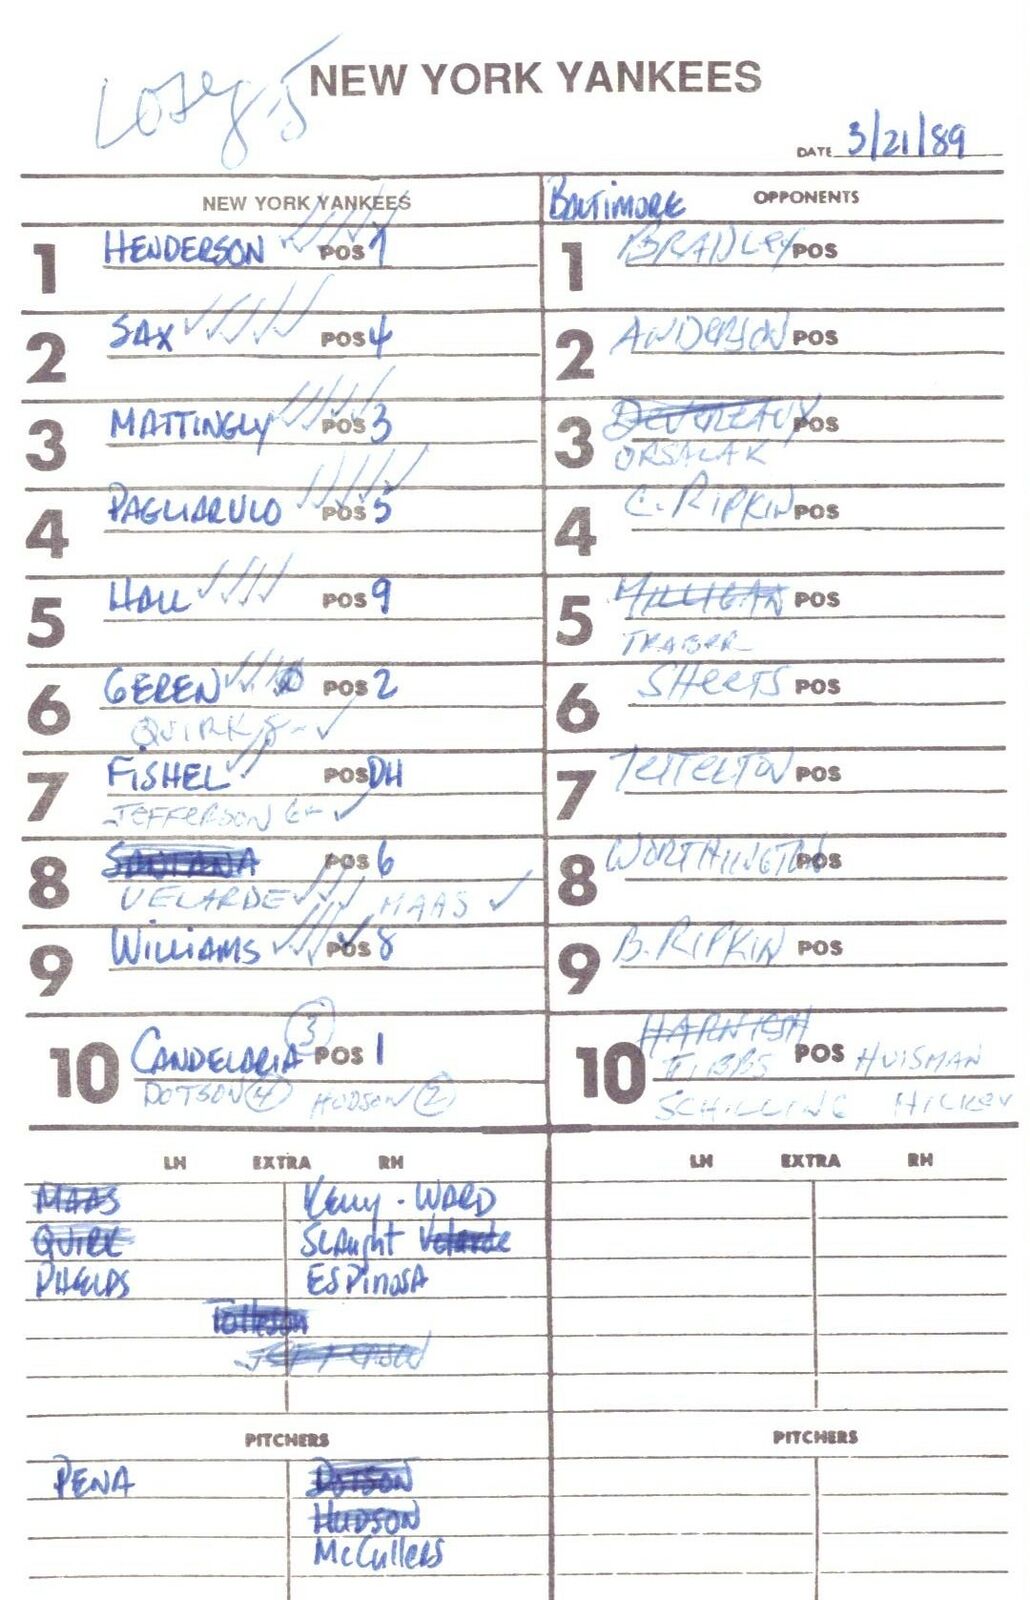 NEW YORK YANKEES
DATE 3/21/89
NEW YORK YANKEES
1 HENDERSON POS 7
2 SAX POS 4
3 MATTINGLY POS 3
4 PAGLIARULO POS 5
5 HALL POS 9
6 GEREN POS 2
QUIRK 8 -
7 FISHEL POS DH
JEFFERSON 6 -
8 SANTANA POS 6
VELARDE MAAS
9 WILLIAMS POS 8
10 CANDELARIA 3 POS 1
DOTSON 4 HUDSON 2
BALTIMORE OPPONENTS
1 BRADLEY POS
2 ANDERSON POS
3 DEVEREAUX POS
ORSALAK
4 C. RIPKIN POS
5 MILLIGAN POS
TRABER
6 SHEETS POS
7 TETTLETON POS
8 WORTHINGTON POS
9 B. RIPKIN POS
10 HARNISH POS HUISMAN
TIBBS
SCHILLING HICKEY
LH EXTRA RH
MAAS KELLY - WARD
QUIRK SLAUGHT VELARDE
PHELPS ESPINOSA
TOLLESON
JEFFERSON
LH EXTRA RH
PITCHERS
PENA DOTSON
HUDSON
McCULLERS
PITCHERS